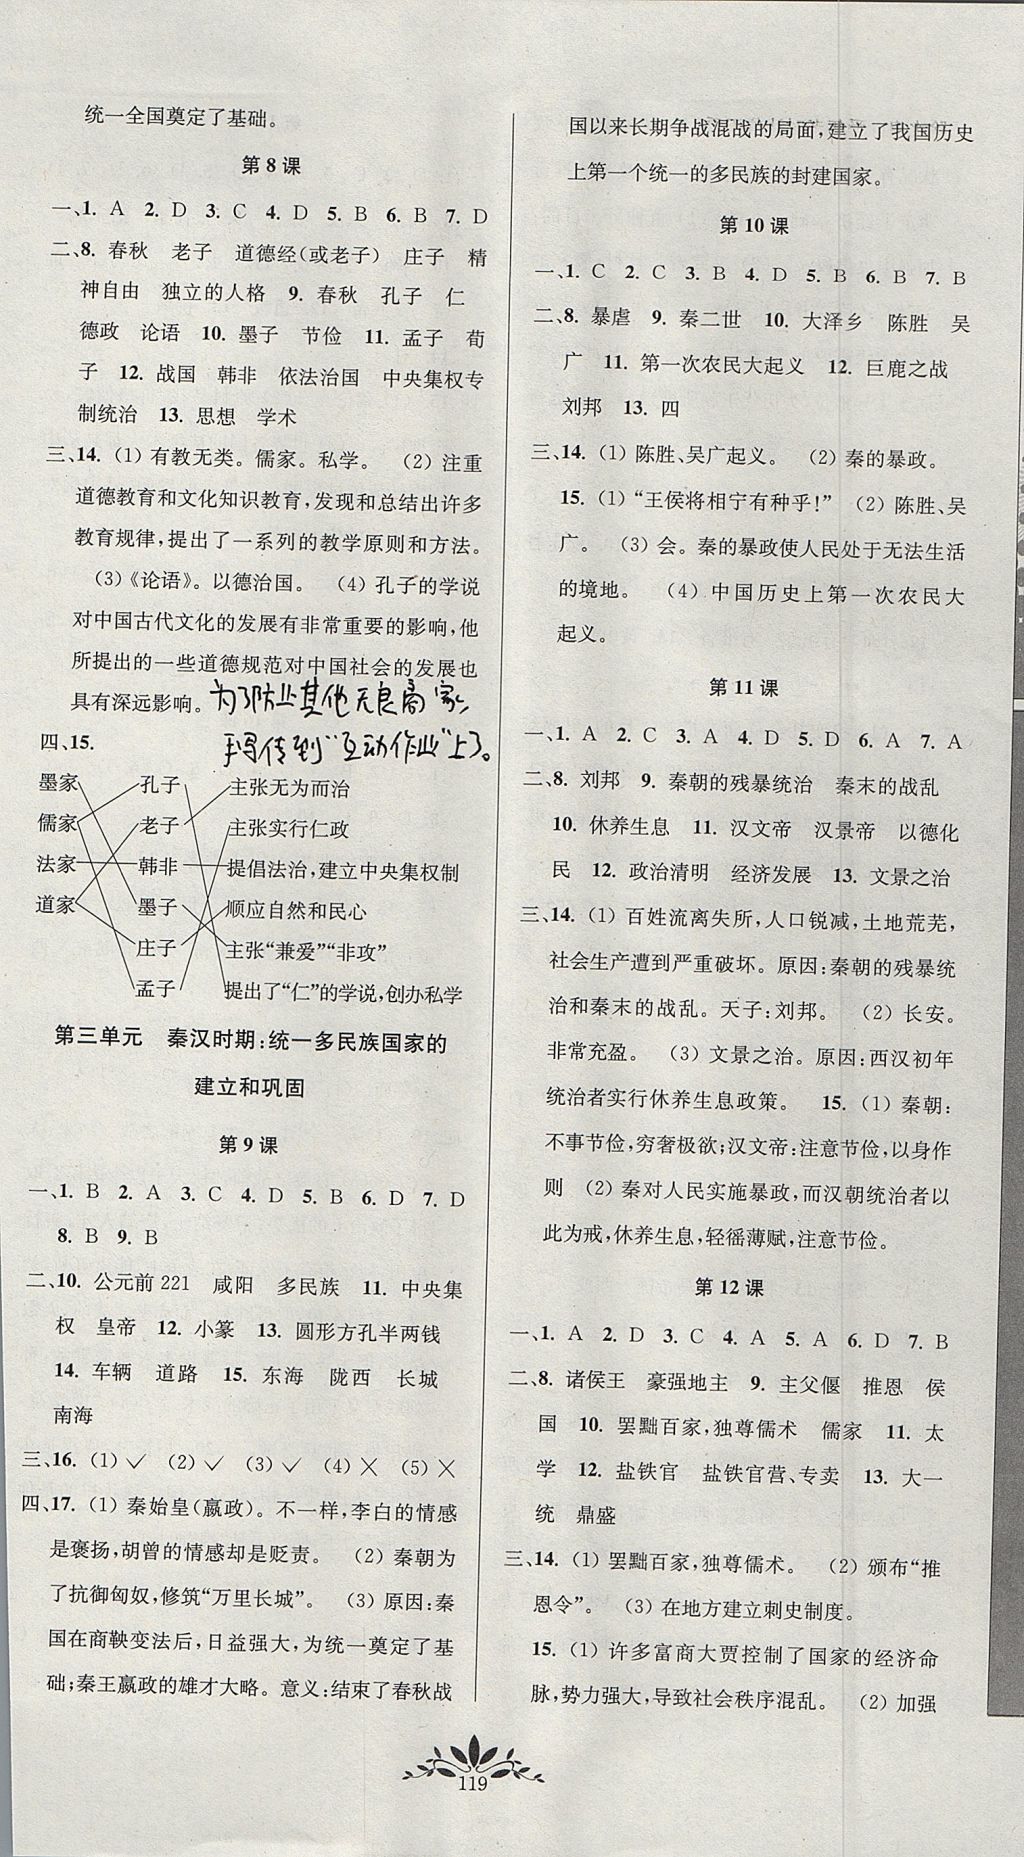 统一全国奠定了基础。
第8课
一、1. A 2. D 3. C 4. D 5. B 6. B 7. D
二、8. 春秋 老子 道德经(或老子) 庄子 精
神自由 独立的人格 9. 春秋 孔子 仁
德政 论语 10. 墨子 节俭 11. 孟子 荀
子 12. 战国 韩非 依法治国 中央集权专
制统治 13. 思想 学术
三、14. (1) 有教无类。儒家。私学。 (2) 注重
道德教育和文化知识教育,发现和总结出许多
教育规律,提出了一系列的教学原则和方法。
(3)《论语》。以德治国。 (4) 孔子的学说
对中国古代文化的发展有非常重要的影响,他
所提出的一些道德规范对中国社会的发展也
具有深远影响。
为了防止其他无良商家,
四、15.
手写传到“互动作业”上了。
墨家 孔子 主张无为而治
儒家 老子 主张实行仁政
法家 韩非 提倡法治,建立中央集权制
道家 墨子 顺应自然和民心
庄子 主张“兼爱”“非攻”
孟子 提出了“仁”的学说,创办私学
第三单元 秦汉时期:统一多民族国家的
建立和巩固
第9课
一、1. B 2. A 3. C 4. D 5. B 6. D 7. D
8. B 9. B
二、10. 公元前221 咸阳 多民族 11. 中央集
权 皇帝 12. 小篆 13. 圆形方孔半两钱
14. 车辆 道路 15. 东海 陇西 长城
南海
三、16. (1) ✓ (2) ✓ (3) ✓ (4) ✗ (5) ✗
四、17. (1) 秦始皇(嬴政)。不一样,李白的情感
是褒扬,胡曾的情感却是贬责。 (2) 秦朝为
了抗御匈奴,修筑“万里长城”。 (3) 原因:秦
国在商鞅变法后,日益强大,为统一奠定了基
础;秦王嬴政的雄才大略。意义:结束了春秋战
国以来长期争战混战的局面,建立了我国历史
上第一个统一的多民族的封建国家。
第10课
一、1. C 2. C 3. B 4. D 5. B 6. B 7. B
二、8. 暴虐 9. 秦二世 10. 大泽乡 陈胜 吴
广 11. 第一次农民大起义 12. 巨鹿之战
刘邦 13. 四
三、14. (1) 陈胜、吴广起义。 (2) 秦的暴政。
15. (1) “王侯将相宁有种乎!” (2) 陈胜、吴
广。 (3) 会。秦的暴政使人民处于无法生活
的境地。 (4) 中国历史上第一次农民大
起义。
第11课
一、1. A 2. C 3. A 4. D 5. D 6. A 7. A
二、8. 刘邦 9. 秦朝的残暴统治 秦末的战乱
10. 休养生息 11. 汉文帝 汉景帝 以德化
民 12. 政治清明 经济发展 13. 文景之治
三、14. (1) 百姓流离失所,人口锐减,土地荒芜,
社会生产遭到严重破坏。原因:秦朝的残暴统
治和秦末的战乱。天子:刘邦。 (2) 长安。
非常充盈。 (3) 文景之治。原因:西汉初年
统治者实行休养生息政策。 15. (1) 秦朝:
不事节俭,穷奢极欲;汉文帝:注意节俭,以身作
则 (2) 秦对人民实施暴政,而汉朝统治者以
此为戒,休养生息,轻徭薄赋,注意节俭。
第12课
一、1. A 2. D 3. C 4. A 5. A 6. D 7. B
二、8. 诸侯王 豪强地主 9. 主父偃 推恩 侯
国 10. 罢黜百家,独尊儒术 儒家 11. 太
学 12. 盐铁官 盐铁官营、专卖 13. 大一
统 鼎盛
三、14. (1) 罢黜百家,独尊儒术。 (2) 颁布“推
恩令”。 (3) 在地方建立刺史制度。
15. (1) 许多富商大贾控制了国家的经济命
脉,势力强大,导致社会秩序混乱。 (2) 加强
119